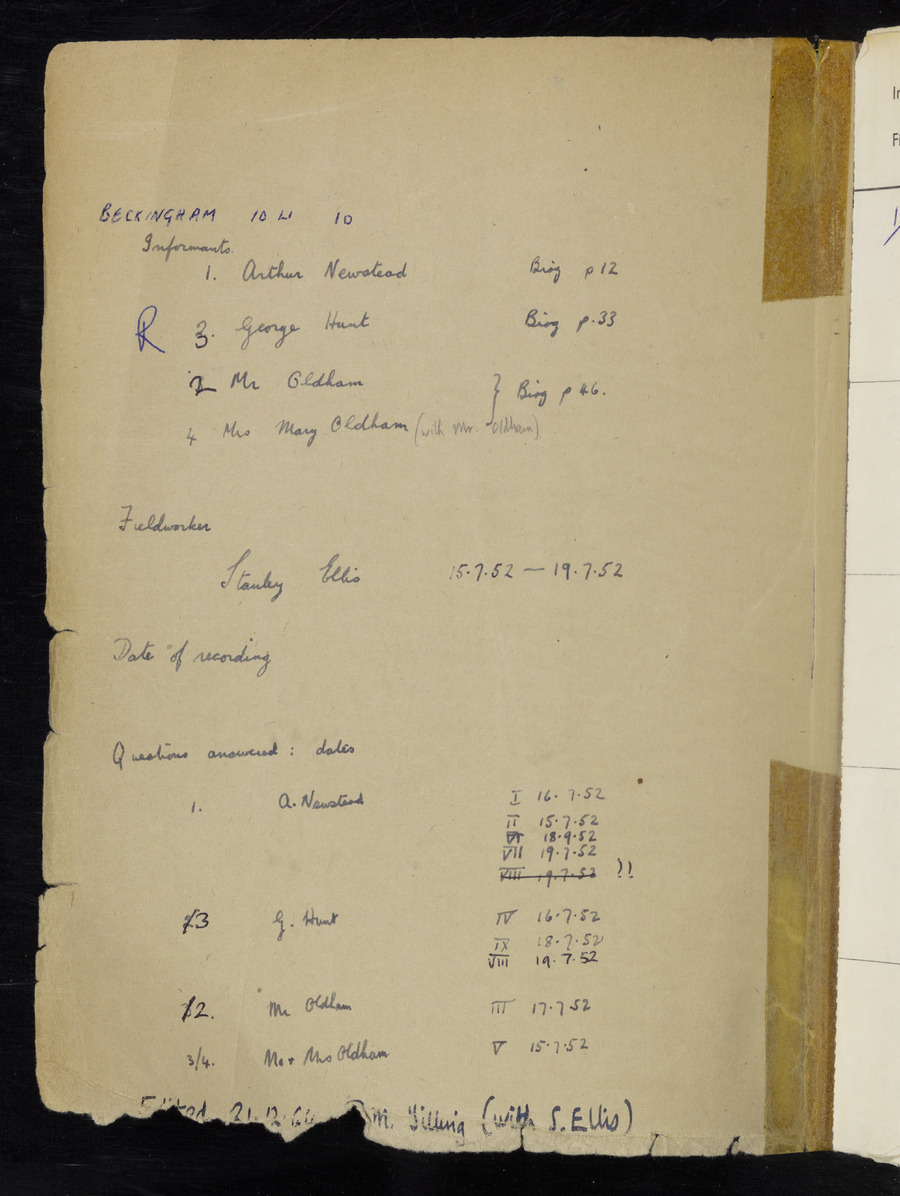 BECKINGHAM 10 LI 10
Informants.
1. Arthur Newstead Biog p 12
R 3. George Hunt Biog p.33
2 Mr Oldham } Biog p 46.
4 Mrs Mary Oldham (with Mr. Oldham)
Fieldworker
Stanley Ellis 15.7.52 — 19.7.52
Date of recording
Questions answered : dates
1. A. Newstead I 16.7.52
II 15.7.52
VI 18.9.52
VII 19.7.52
VIII 19.7.52 ?!
3 G. Hunt IV 16.7.52
IX 18.7.52
VIII 19.7.52
2. Mr Oldham III 17.7.52
3/4. Mr + Mrs Oldham V 15.7.52
Edited 21.12.64 M. (with S. Ellis)